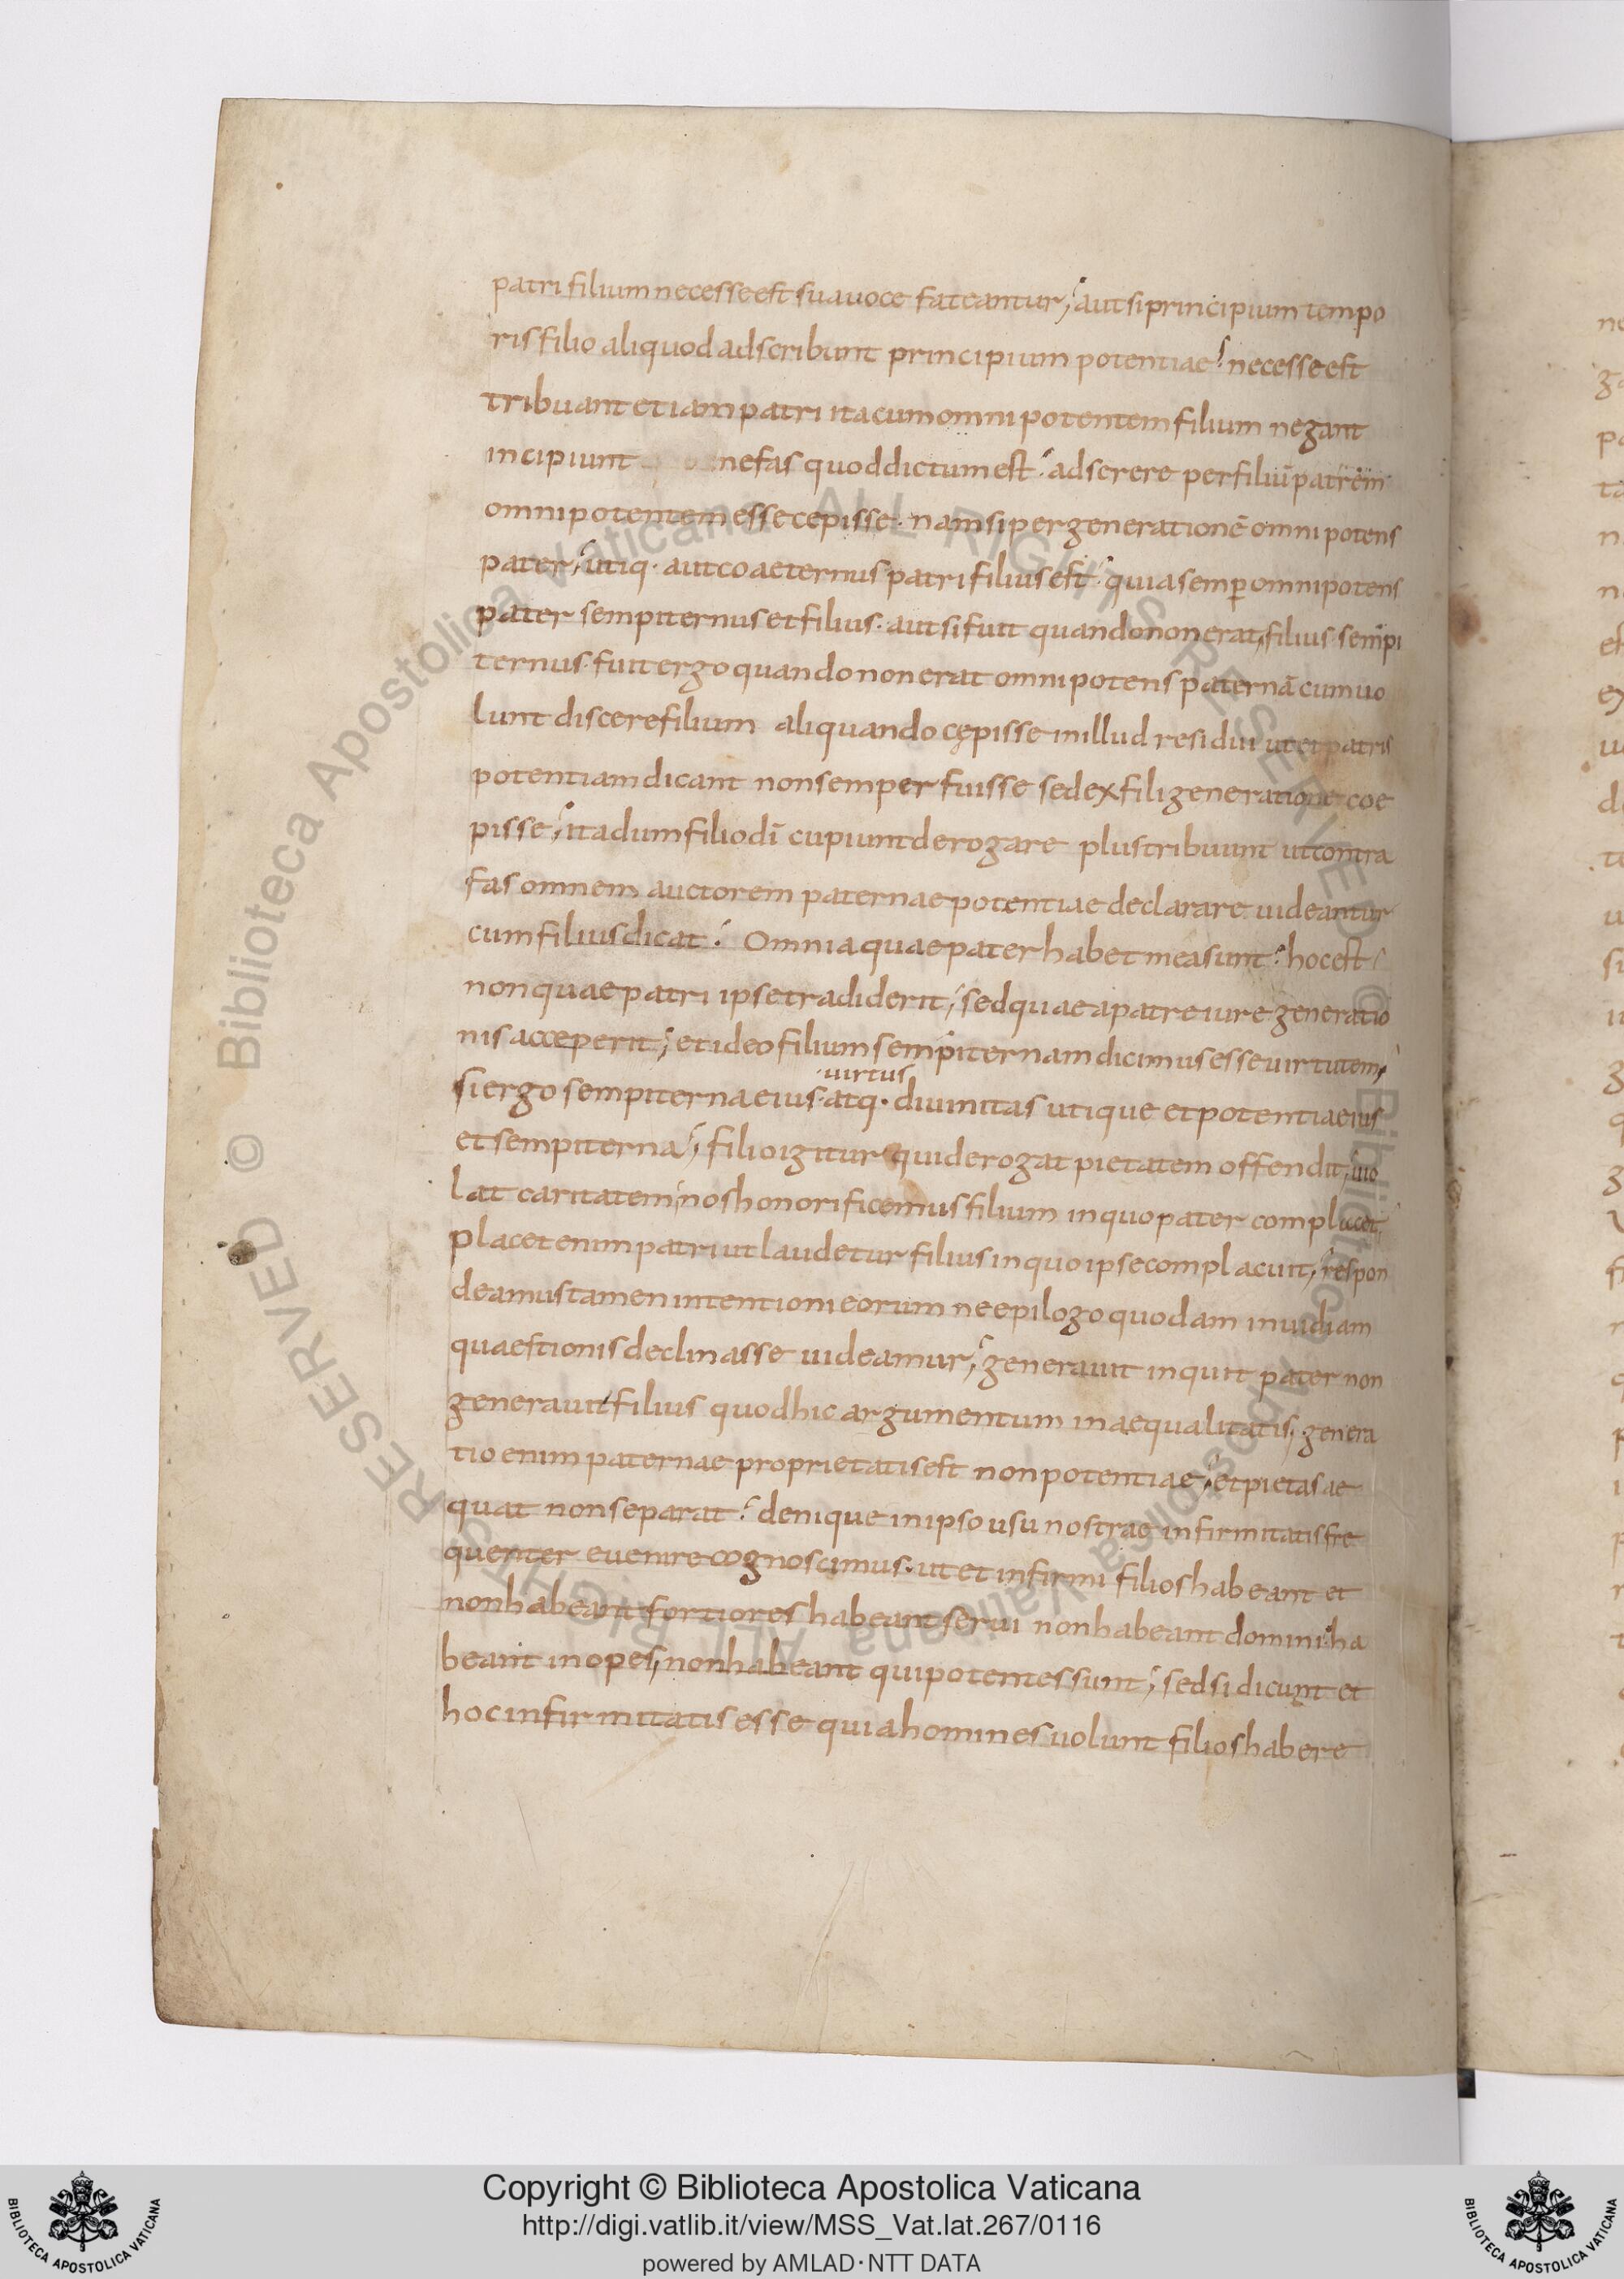 patri filium necesse est sua uoce fateantur; aut si principium tempo
ris filio aliquod adscribunt principium potentiae necesse est
tribuant etiam patri ita cum omnipotentem filium negant
incipiunt nefas quod dictum est adserere per filiū patrem
omnipotentem esse cepisse. nam si per generationē omnipotens
pater, utiq· aut coaeternus patri filius est quia semꝑ omnipotens
pater sempiternus et filius. aut si fuit quando non erat, filius sempi
ternus. fuit ergo quando non erat omnipotens paternā cum uo
lunt discere filium aliquando cępisse in illud residui ut et patris
potentiam dicant non semper fuisse sed ex fili generatione coe
pisse; ita dum filio dī cupiunt derogare plus tribuunt ut contra
fas omnem auctorem paternae potentiae declarare uideantur
cum filius dicat. Omnia quae pater habet mea sunt. hoc est
non quae patri ipse tradiderit; sed quae a patre iure generatio
nis acceperit; et ideo filium sempiternam dicimus esse uirtutem,
uirtus
si ergo sempiterna eius atq· diuinitas utique et potentia eius
et sempiterna; filio igitur qui derogat pietatem offendit, uio
lat caritatem; nos honorificemus filium in quo pater complacet.
placet enim patri ut laudetur filius in quo ipse complacuit, respon
deamus tamen intentioni eorum ne epilogo quodam inuidiam
quaestionis declinasse uideamur; generauit inquit pater non
generauit filius quod hic argumentum inaequalitatis. genera
tio enim paternae proprietatis est non potentiae, et pietas ae
quat non separat. denique in ipso usu nostrae infirmitatis fre
quenter euenire cognoscimus. ut et infirmi filios habeant et
non habeant fortiores habeant serui non habeant domini. ha
beant inopes, non habeant qui potentes sunt; sed si dicunt et
hoc infirmitatis esse quia homines uolunt filios habere
Copyright © Biblioteca Apostolica Vaticana
http://digi.vatlib.it/view/MSS_Vat.lat.267/0116
powered by AMLAD·NTT DATA
© Biblioteca Apostolica Vaticana ALL RIGHTS RESERVED
© Biblioteca Apostolica Vaticana ALL RIGHTS RESERVED
BIBLIOTECA APOSTOLICA VATICANA
BIBLIOTECA APOSTOLICA VATICANA